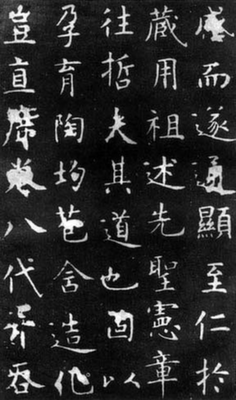 感而遂通顯至仁於
藏用祖述先聖憲章
往哲夫其道也固以
孕育陶均苞含造化
豈直席卷八代并吞